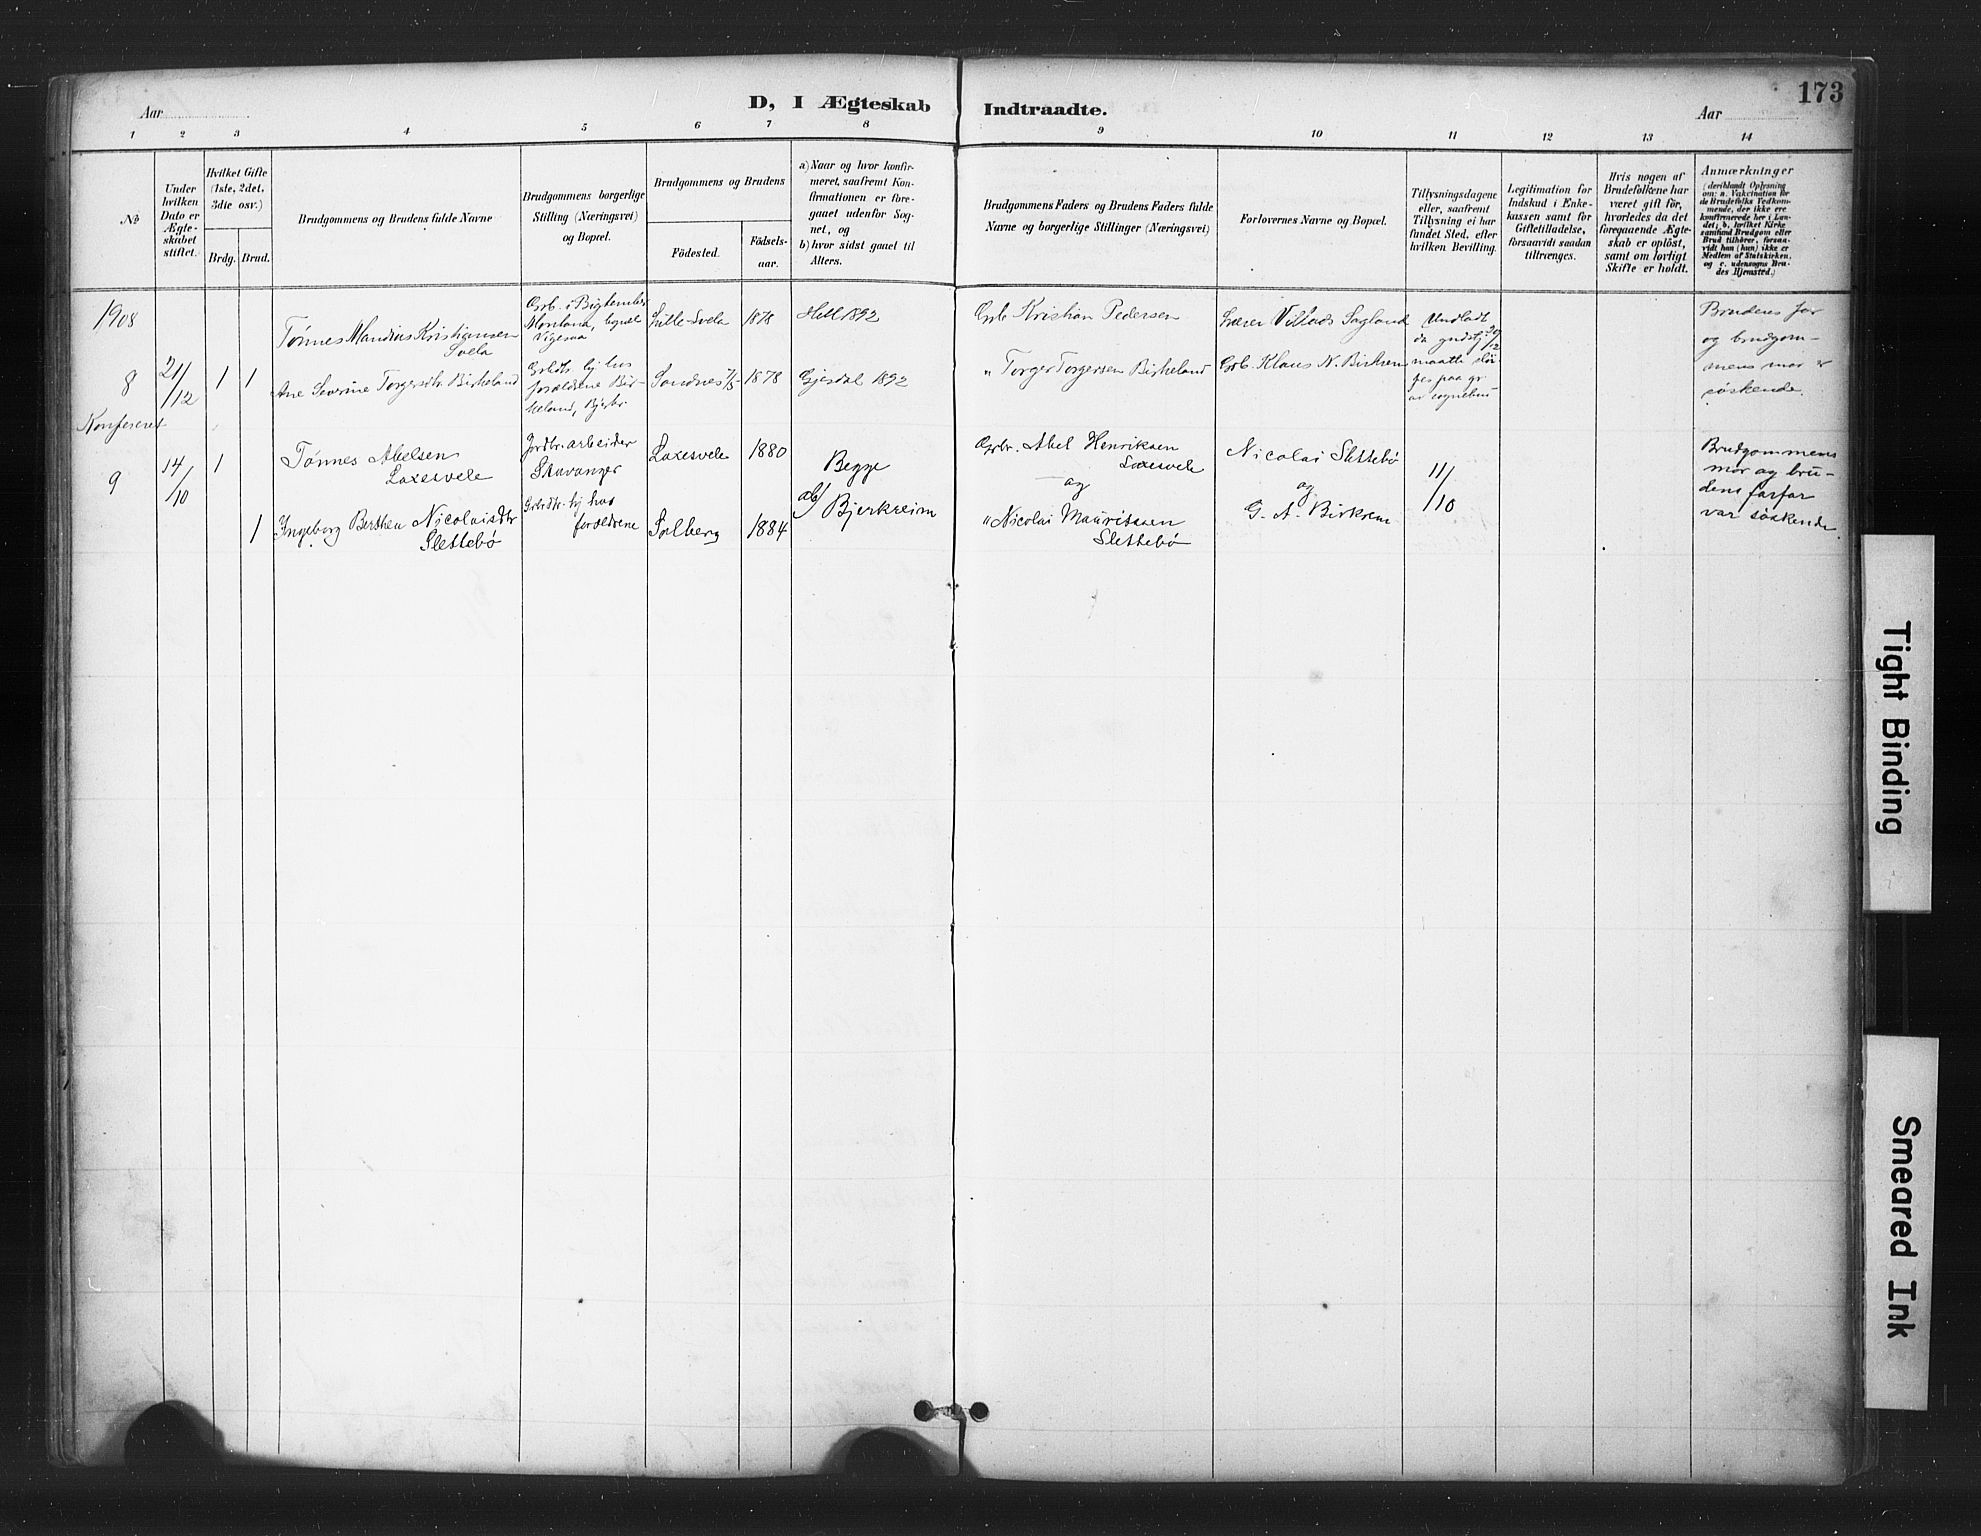 173
Aar
D, I Ægteskab Indtraadte.
Aar
1 2 3 4 5 6 7 8 9 10 11 12 13 14
No
Under hvilken Dato er Ægteskabet stiftet.
Hvilket Gifte (1ste, 2det, 3dte osv.)
Brdg. Brud.
Brudgommens og Brudens fulde Navne
Brudgommens borgerlige Stilling (Næringsvei) og Bopæl.
Brudgommens og Brudens
Födested.
Födsels-aar.
a) Naar og hvor konfirmeret, saafremt Konfirmationen er foregaaet udenfor Sognet, og
b) hvor sidst gaaet til Alters.
Brudgommens Faders og Brudens Faders fulde Navne og borgerlige Stillinger (Næringsvei)
Forlovernes Navne og Bopæl.
Tillysningsdagene eller, saafremt Tillysning ei har fundet Sted, efter hvilken Bevilling.
Legitimation for Indskud i Enkekassen samt for Giftetilladelse, forsaavidt saadan tiltrænges.
Hvis nogen af Brudefolkene har været gift för, hvorledes da det foregaaende Ægteskab er oplöst, samt om lovligt Skifte er holdt.
Anmærkninger
(deriblandt Oplysning om: a. Vakcination for de Brudefolks Vedkommende, der ikke ere konfirmerede her i Landet; b, hvilket Kirkesamfund Brudgom eller Brud tilhører, forsaavidt han (hun) ikke er Medlem af Statskirken, og c. udensogns Brudes Hjemsted.)
1908
8
21/12
1 1
Tønnes Mandius Kristiansen
Svela
Ane Severine Torgersdtr. Birkeland
Grb. i
Vigesaa
Lille-Svela
1878
Hell 1892
Grb. Kristian Pedersen
Lærer Villads Sagland
Undladt
Brudens far
og brudgom-
mens mor er
søskende.
hj. hos
forældrene Bir-
keland, Bjerkr.
Sandnes
1878
Gjesdal 1892
" Torger Torgersen Birkeland
Grb. Klaus N. Birkrem
maatte
Konfereret
9
14/10
1
Tønnes Abelsen
Laxesvele
Jordbr. arbeider
Stavanger
Laxesvele
1880
Begge
ab/ Bjerkreim
Grbr. Abel Henriksen
Laxesvele
og
Nicolai Slettebö
og
G. A. Birkrem
11/10
Brudgommens
mor og bru-
dens farfar
var söskende
1
Ingeborg Berthea Nicolaisdtr
Slettebö
hj. hos
forældrene
Solberg
1884
" Nicolai Mauritssen
Slettebö
Tight Binding
Smeared Ink